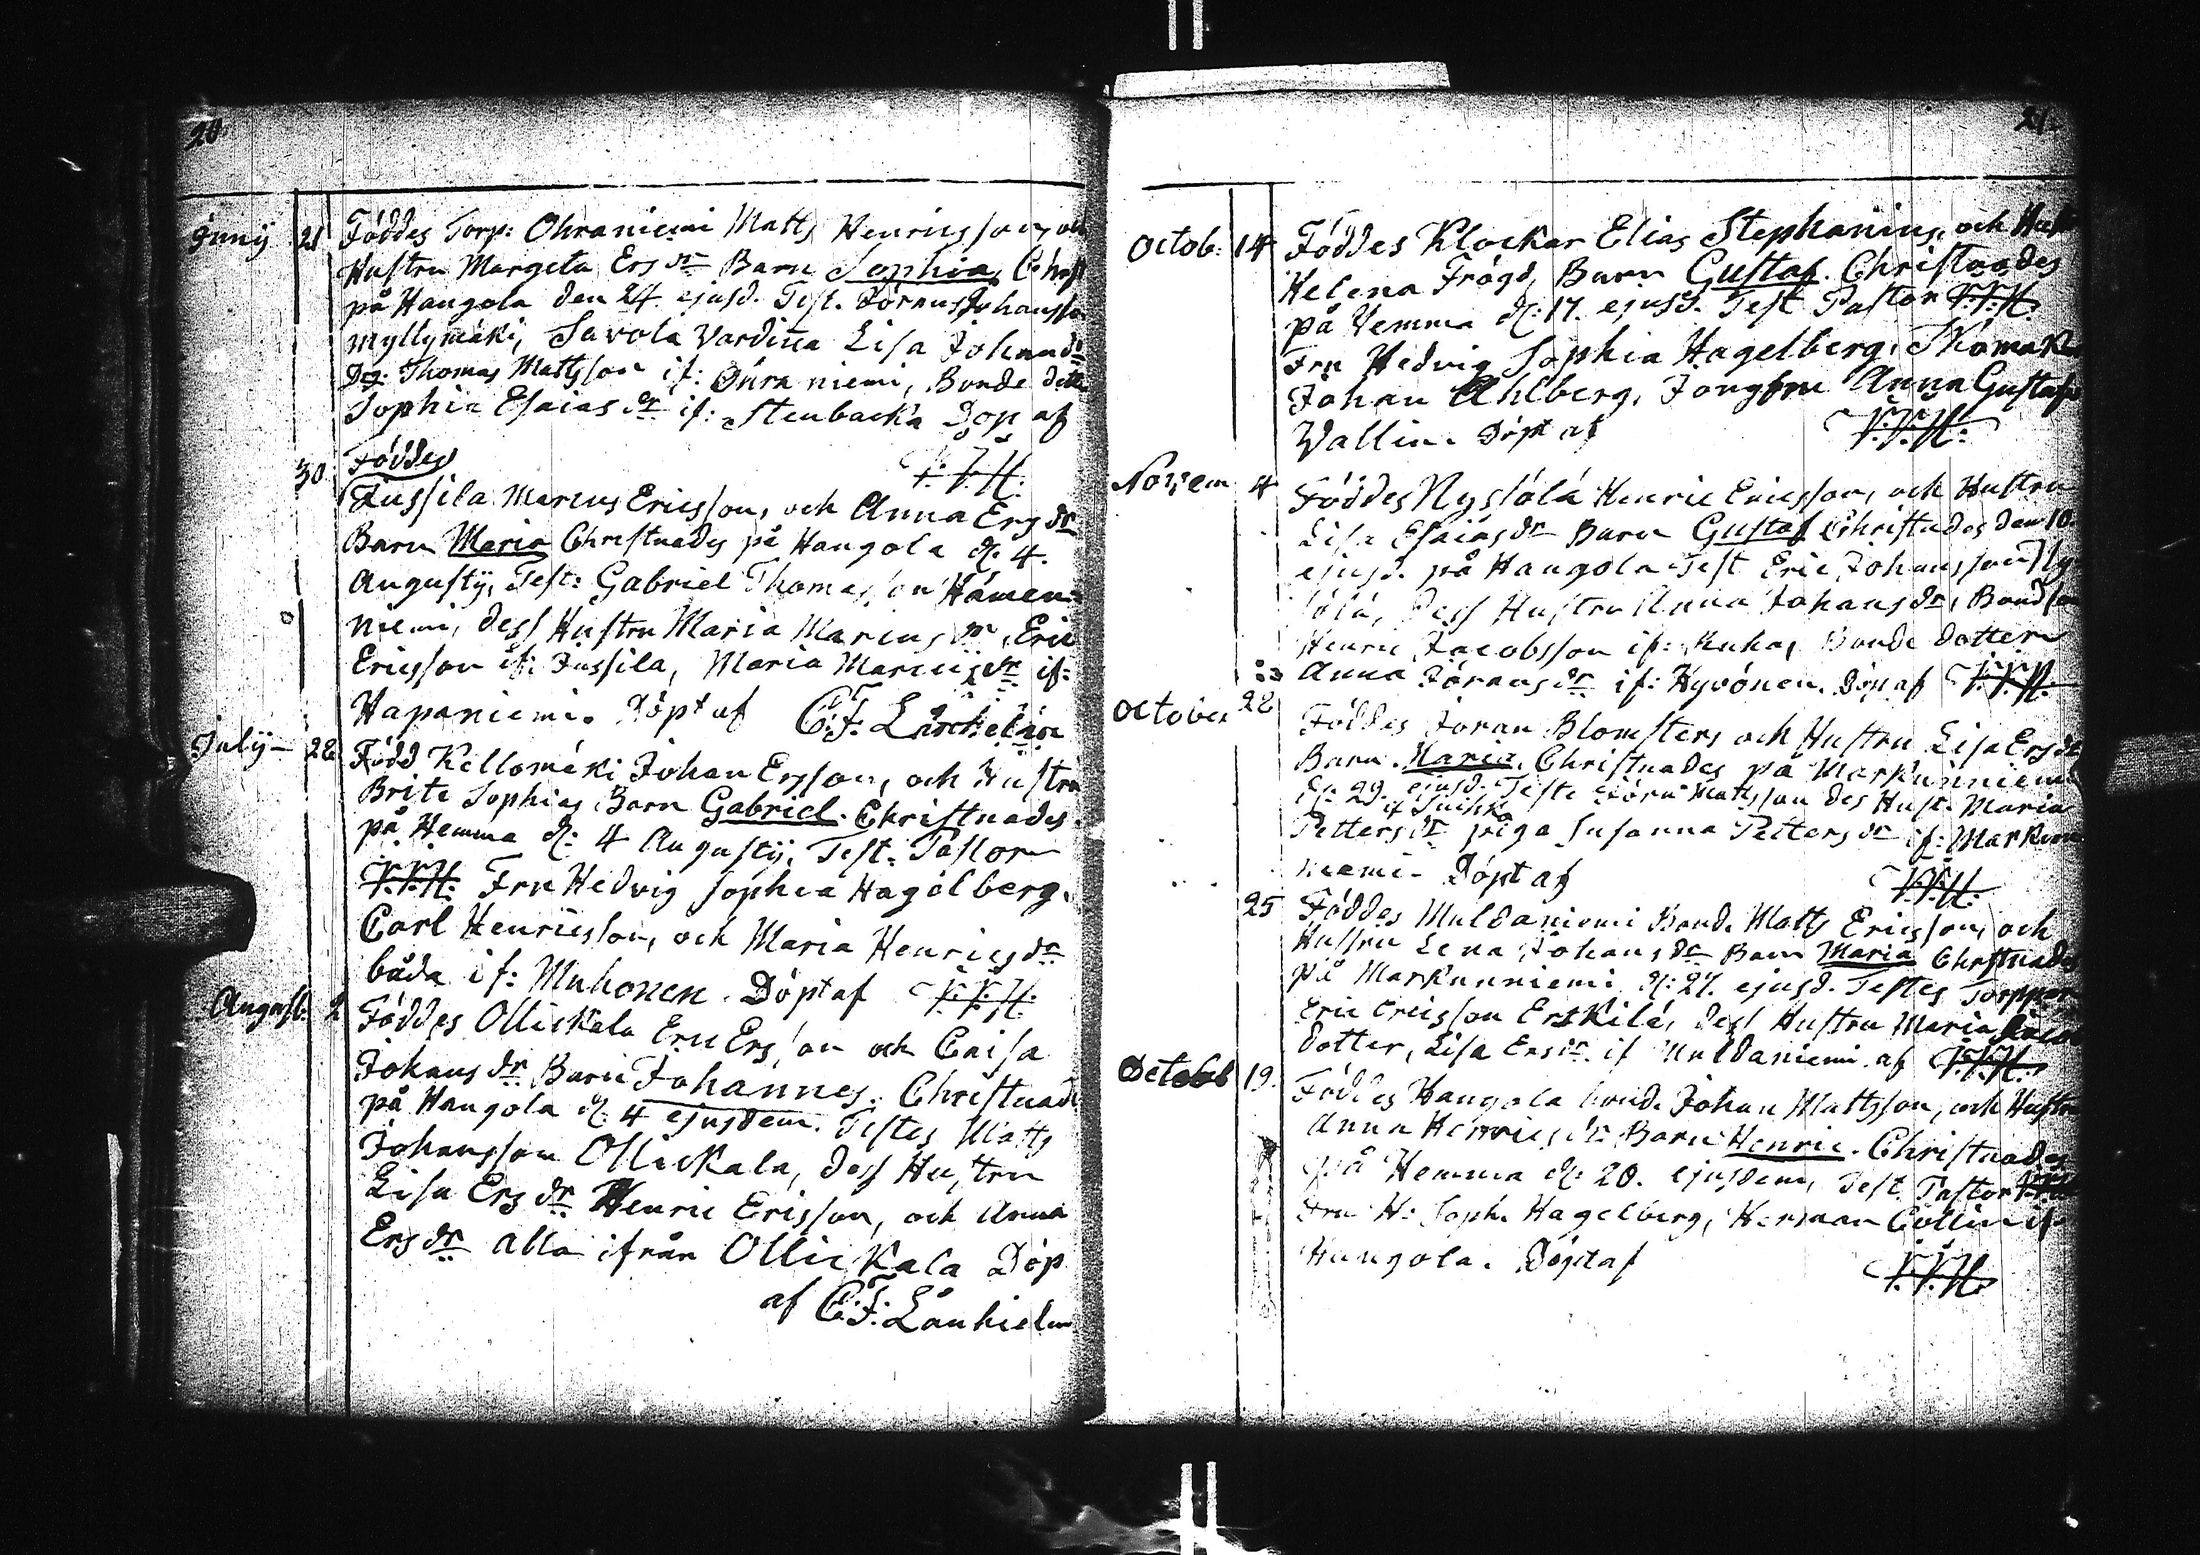 20
Junÿ 21 Föddes Torp: Ohraniemi Matts Henricsson, och
Hustru Margeta Ersdr Barn Sophia, Christ
på Haugola den 24 ejusd. Test. Jöran Johansson
Myllymäki, Savola Vardiña Lisa Johansdr
Thomas Mattsson if: Öhra niemi, Bonde dotte
Sophia Esaiasdr if: Stenbacka Döp af
V.V.H.
30 Föddes
Jussila Marcus Ericsson, och Anna Ersdr
Barn Maria Christnades på Haugola d: 4.
Augustÿ, Test: Gabriel Thomasson Hämen=
niemi, dess Hustru Maria Marcusdr, Eric
Ericsson if: Jussila, Maria Marcusdr if:
Hapaniemi. Döpt af C.F.
Julÿ 28 Född Kellomäki Johan Ersson, och Hustru
Brita Sophias Barn Gabriel. Christnades
på Hemma d: 4 Augustÿ, Test. Pastor
V.V.H. Fru Hedvig Sophia Hagelberg,
Carl Henricsson, och Maria Henricsdr
båda if: Muhonen. Döpt af V.V.H.
August: 2 Föddes Ollickala Eric Ersson och Caisa
Johansdr Barn Johannes. Christnad
på Haugola d: 4 ejusdem. Testes Matts
Johansson Ollickala, dess Hustru
Lisa Ersdr Henric Ericsson, och Anna
Ersdr alla ifrån Ollickala Döp
af C.F.
21.
Octob: 14 Föddes Klockar Elias Stephanius, och Hust
Helena Frögd, Barn Gustaf. Christnades
på Hemma d: 17. ejusd. Test Pastor V.V.H.
Fru Hedvig Sophia Hagelberg,
Johan Ahlberg, Jongfru Anna Gustafv
Wallin. Döpt af V.V.H.
Novem 4 Föddes Nyslölä Henric Ericsson, och Hustru
Lisa Esaiasdr Barn Gustaf Christnades den 10.
ejusd. på Haugola Test Eric Johansson Ny
lölä, dess Hustru Anna Johansdr, Bondson
Henric Jacobsson if: Kuha, Bonde dotter
Anna Jöransdr if: Hyvönen. Döp af V.V.H.
October 28 Föddes Joran Blomsters och Hustru Lisa Ersdr
Barn Maria. Christnades på Markunniemi
d: 29. ejusd. Teste Jöran Mattsson des Hust. Maria
Pettersdr piga Susanna Pettersdr if: Markun
niemi. Döpt af V.V.H.
25 Föddes Muldaniemi Bond. Matts Ericsson, och
Hustru Lena Johansdr Barn Maria Christnades
på Markunniemi d: 27. ejusd. Testes Torppar
Eric Ericsson Erskilä, dess Hustru Maria
dotter, Lisa Ersdr if Muldaniemi af V.V.H.
Octobb 19. Föddes Haugola bond. Johan Mattsson, och Hustru
Anna Henricsdr Barn Henric. Christnades
på Hemma d: 20. ejusdem, Test Pastor V.V.H.
Fru H: Soph. Hagelberg, Herman Collin if
Haugola. Döpt af V.V.H.